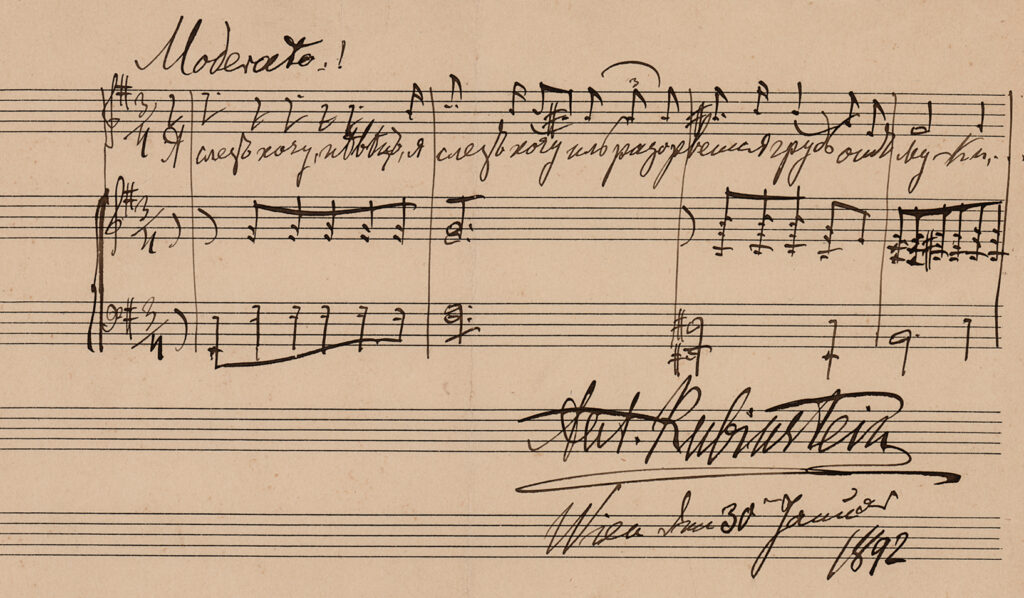 Moderato.!
Я слезъ хочу, пѣвецъ, я слезъ хочу иль разорвется грудь отъ му-ки...
Ant. Rubinstein
Wien den 30 Januar
1892